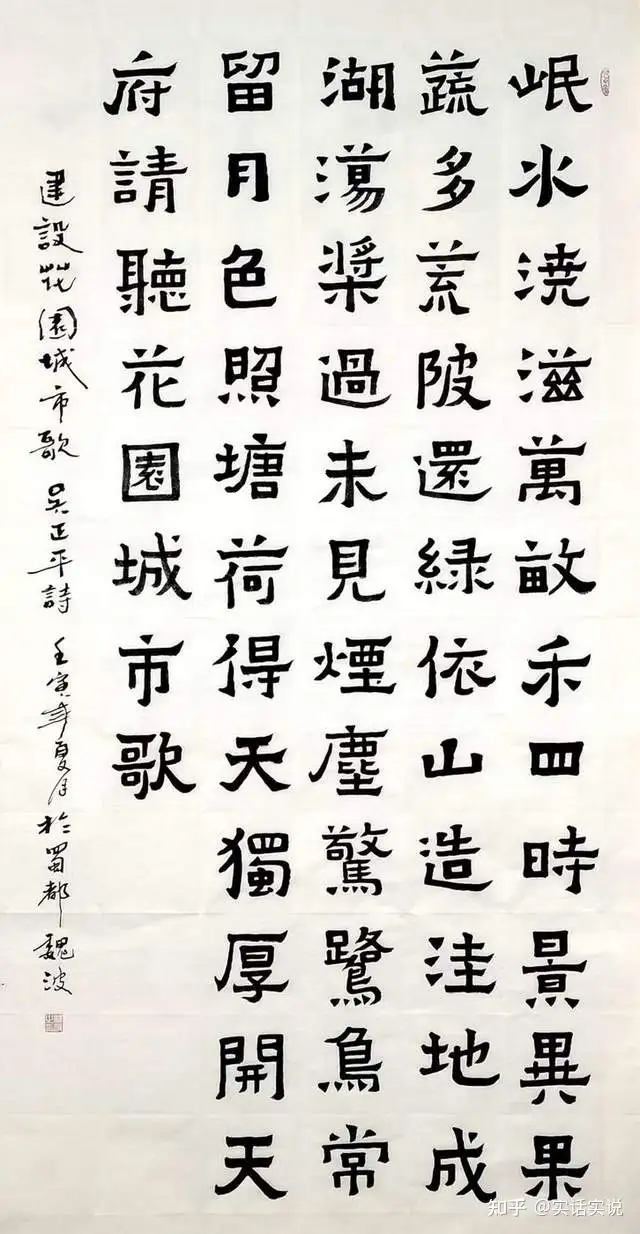 岷水浇滋萬畝禾四時景異果
蔬多荒陂還緑依山造洼地成
湖蕩槳過未見煙塵驚鷺鳥常
留月色照塘荷得天獨厚開天
府請聽花園城市歌
建設花園城市歌 吴正平詩 壬寅年夏月於蜀都 魏波
知乎 @实话实说